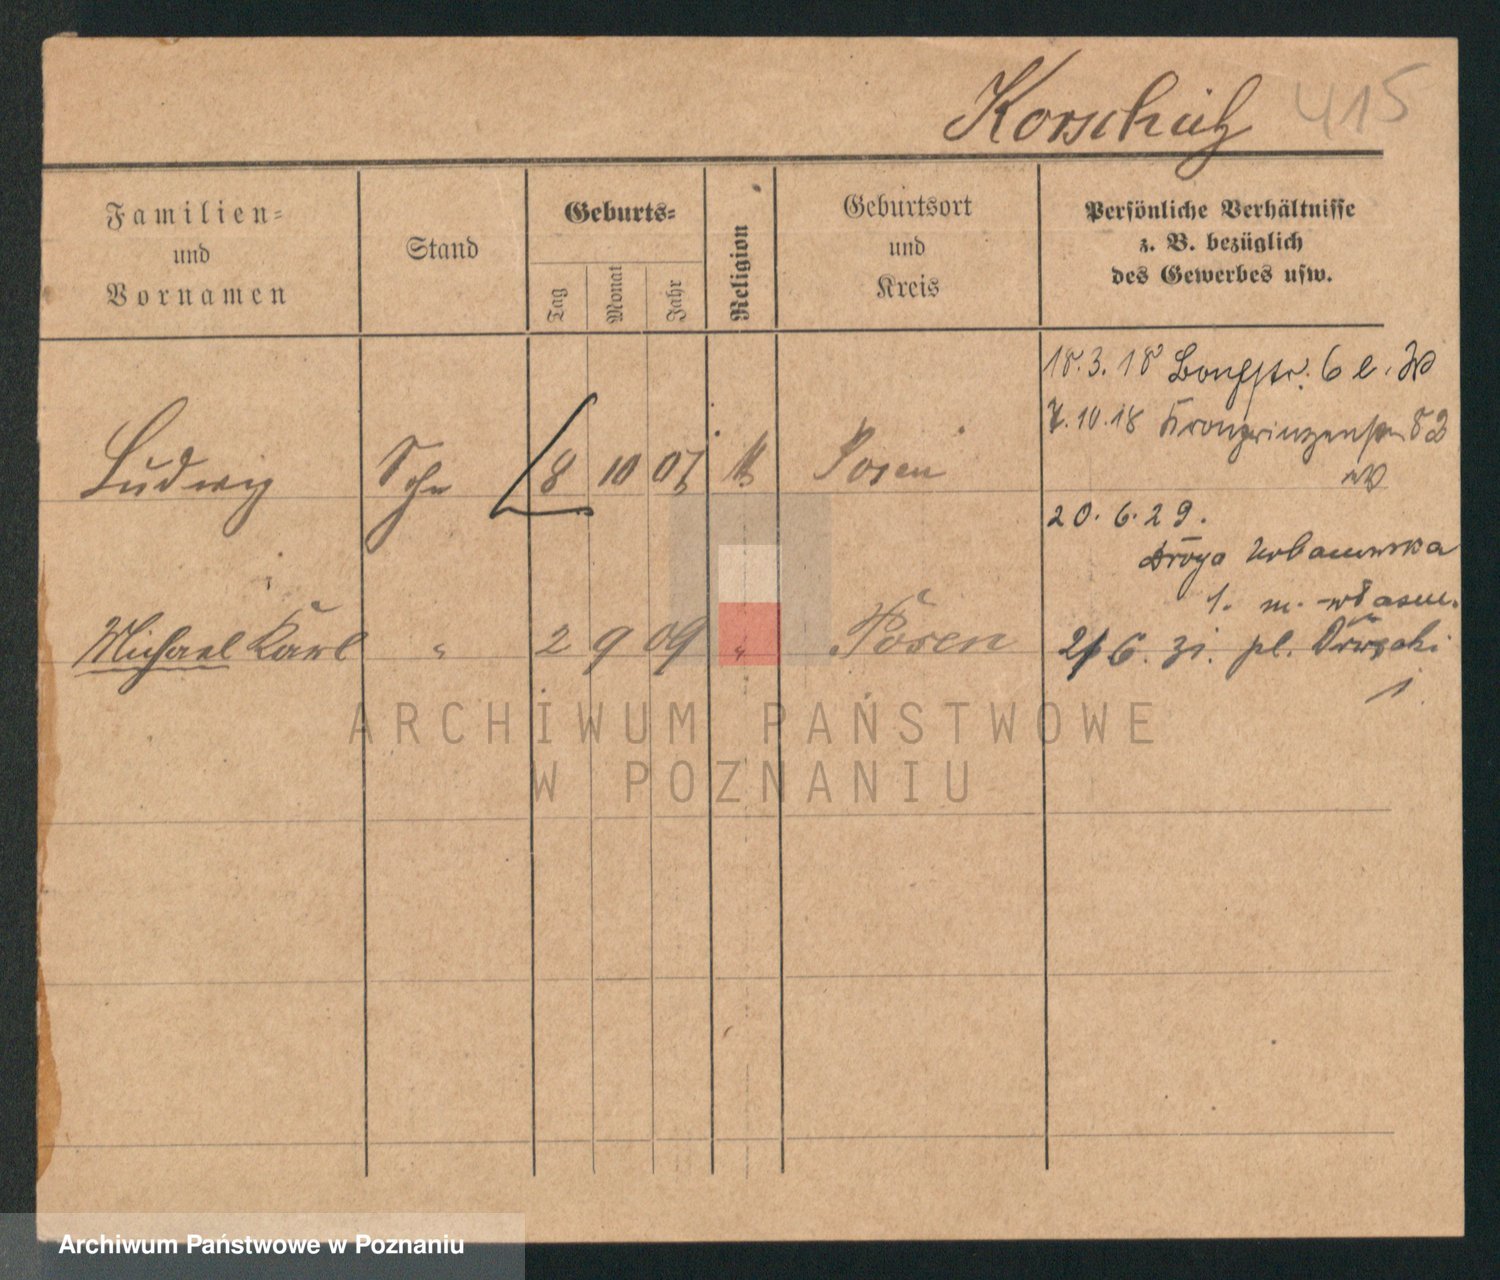 Korschütz 415
Familien-
und
Vornamen
Stand
Geburts-
Tag
Monat
Jahr
Religion
Geburtsort
und
Kreis
Persönliche Verhältnisse
z. B. bezüglich
des Gewerbes usw.
18.3.18 6
7.10.18 Kronprinzenstr. 82
Ludwig Sohn 8 10 07 Posen
20.6.29.
Droga Urbanowska
1. m. własn.
Michael Karl " 2 9 09 " Posen
6. 31. pl.
1
ARCHIWUM PAŃSTWOWE
W POZNANIU
Archiwum Państwowe w Poznaniu